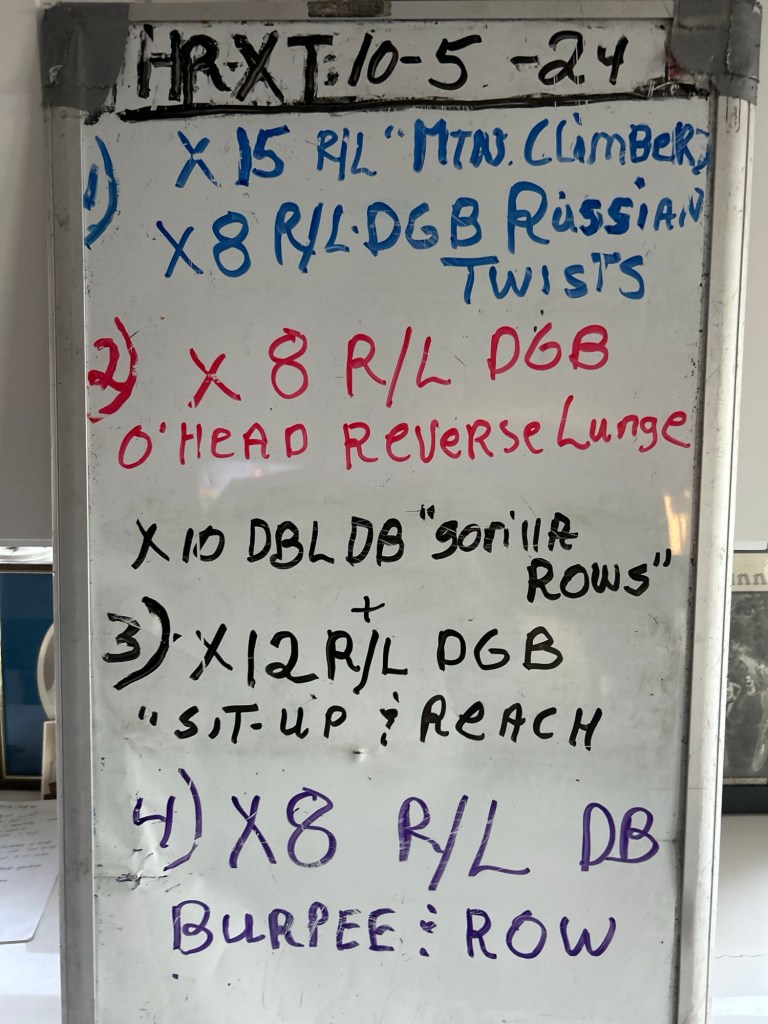 HR-XT: 10-5-24
1) X 15 R/L "MTN. CLimBeR,
X8 R/L·DGB RussiAN
TWISTS
2) X 8 R/L DGB
O'HeAD ReVeRSe Lunge
X 10 DBL DB "gorillA
ROWS"
+
3) X12 R/L DGB
"SIT-UP & ReACH
4) X8 R/L DB
BURPEE & ROW